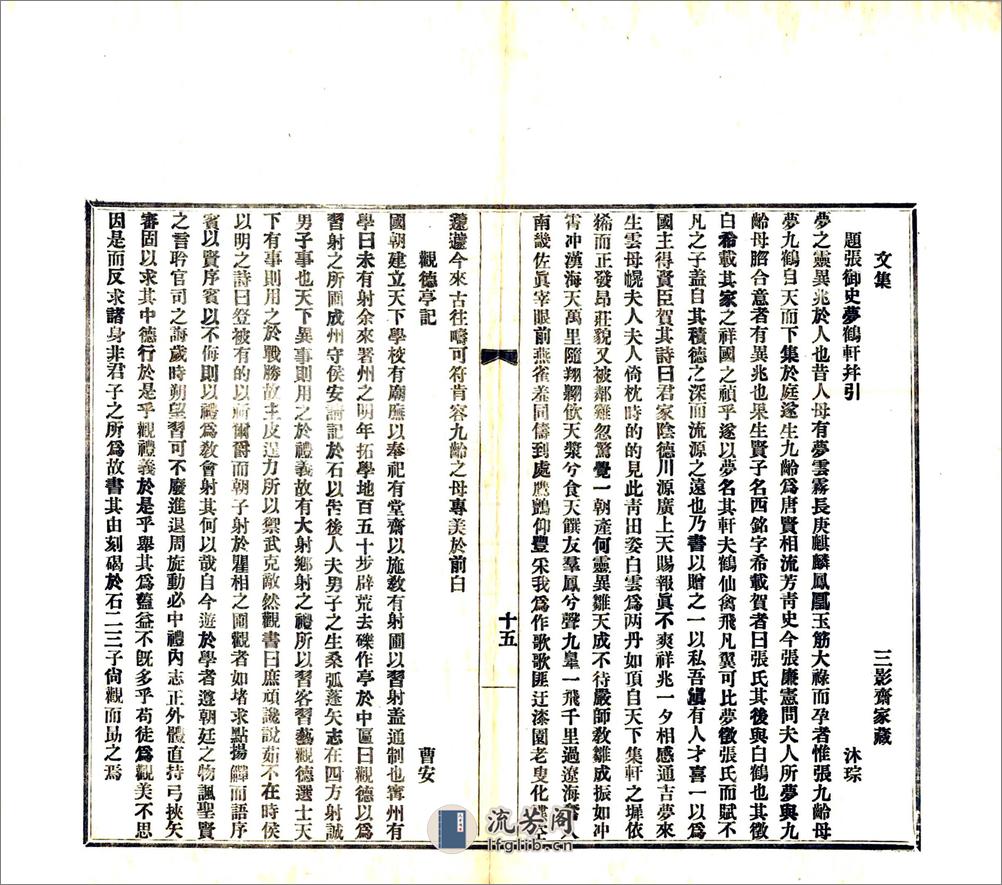 文集　三影齋家藏
題張御史夢鶴軒并引　沐琮
夢之靈異兆於人也昔人母有夢雲霧長庚麒麟鳳凰玉筋大祿而孕者惟張九齡母
夢九鶴自天而下集於庭遂生九齡爲唐賢相流芳靑史今張廉憲問夫人所夢與九
齡母脗合意者有異兆也果生賢子名西銘字希載賀者曰張氏其後與白鶴也其徵
白希載其家之祥國之禎乎遂以夢名其軒夫鶴仙禽飛凡翼可比夢徵張氏而賦不
凡之子蓋自其積德之深而流源之遠也乃書以贈之一以私吾滇有人才喜一以爲
國主得賢臣賀其詩曰君家陰德川源廣上天賜報眞不爽祥兆一夕相感通吉夢來
生雲母幌夫人夫人倚枕時的的見此靑田姿白雲爲兩丹如頂自天下集軒之墀依
稀而正發昂莊貌又被鄰雞忽驚覺一朝產何靈異雛天成不待嚴師敎雛成振如冲
霄冲漢海天萬里隨翔翺飮天漿兮食天饌友羣鳳兮聲九臯一飛千里過遼海奮人
南畿佐眞宰眼前燕雀羞同儔到處鷹鸇仰豐采我爲作歌歌匪迂漆園老叟化蝶全
蘧蘧今來古往疇可符肯容九齡之母專美於前白
十五
觀德亭記　曹安
國朝建立天下學校有廟廡以奉祀有堂齋以施敎有射圃以習射蓋通制也寗州有
學曰未有射余來署州之明年拓學地百五十步辟荒去礫作亭於中區曰觀德以爲
習射之所圃成州守侯安請記於石以告後人夫男子之生桑弧蓬矢志在四方射誠
男子事也天下異事則用之於禮義故有大射鄉射之禮所以習客習藝觀德選士天
下有事則用之於戰勝故主皮逞力所以禦武克敵然觀書曰庶頑讒說茹不在時侯
以明之詩曰發彼有的以祈爾爵而朝子射於矍相之圃觀者如堵求點揚觶而語序
賓以賢序賓以不侮則以禮爲敎會射其何以哉自今遊於學者遵朝廷之物諷聖賢
之言聆官司之誨歲時朔望習可不廢進退周旋動必中禮內志正外體直持弓挾矢
審固以求其中德行於是乎觀禮義於是乎舉其爲藍益不旣多乎苟徒爲觀美不思
因是而反求諸身非君子之所爲故書其由刻碣於石二三子尙觀而勗之焉
流芳阁
lfglib.cn